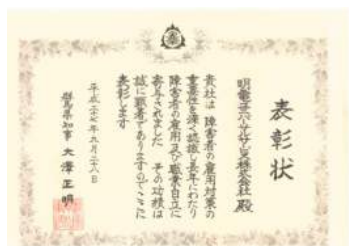 表彰状
明電ユニバーサルサービス株式会社 殿
貴社は障害者の雇用対策の
重要性を深く認識し長年にわたり
障害者の雇用及び職業自立に
寄与されました その功績は
誠に顕著でありますのでここに
表彰します
平成二十七年九月二十八日
群馬県知事 大澤正明